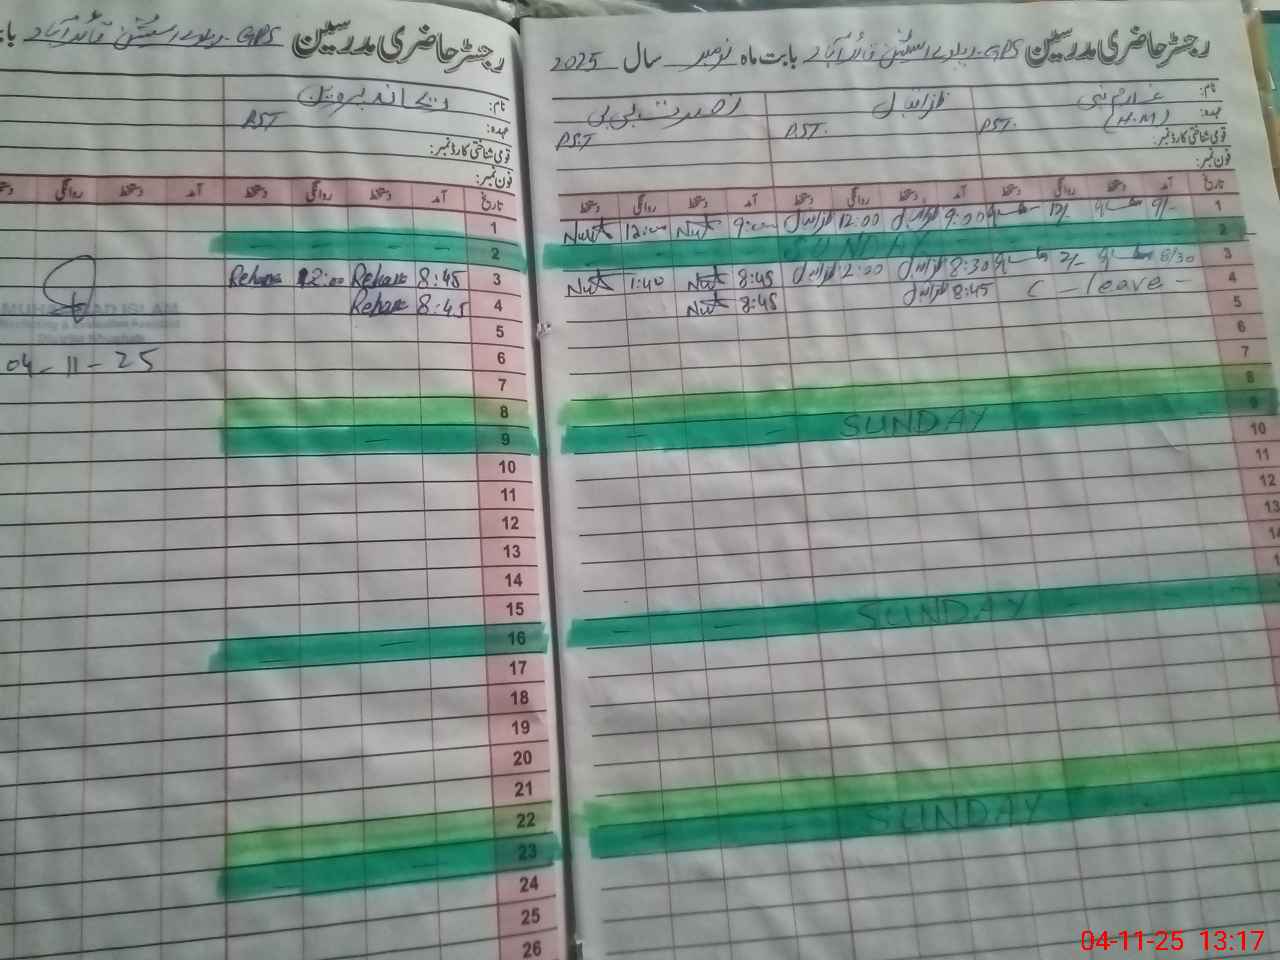 رجسٹر حاضری مدرسین GPS ریلوے اسٹیشن قائد آباد بابت ماہ نومبر سال 2025
نام: غلام نبی ظفر اقبال نصرت بی بی
عہدہ: (H.M) PST. PST. PST
قومی شناختی کارڈ نمبر:
فون نمبر:
تاریخ آمد دستخط روانگی دستخط آمد دستخط روانگی دستخط آمد دستخط روانگی دستخط
1 9/- 12/- 9:00 12:00 9:00 Nusrat 12:00 Nusrat
2 SUNDAY
3 8/30 2/- 8:30 2:00 8:45 Nusrat 1:40 Nusrat
4 C - leave - 8:45 8:45 Nusrat
5
6
7
8
9 SUNDAY
10
11
12
13
14
SUNDAY
SUNDAY
رجسٹر حاضری مدرسین GPS ریلوے اسٹیشن قائد آباد
نام: ریحانہ پروین
عہدہ: PST
قومی شناختی کارڈ نمبر:
فون نمبر:
تاریخ آمد دستخط روانگی دستخط آمد دستخط روانگی
1
2
3 8:45 Rehana 12:00 Rehana
4 8:45 Rehana
5
6
7
8
9
10
11
12
13
14
15
16
17
18
19
20
21
22
23
24
25
26
MUHAMMAD ISLAM
04-11-25
04-11-25 13:17